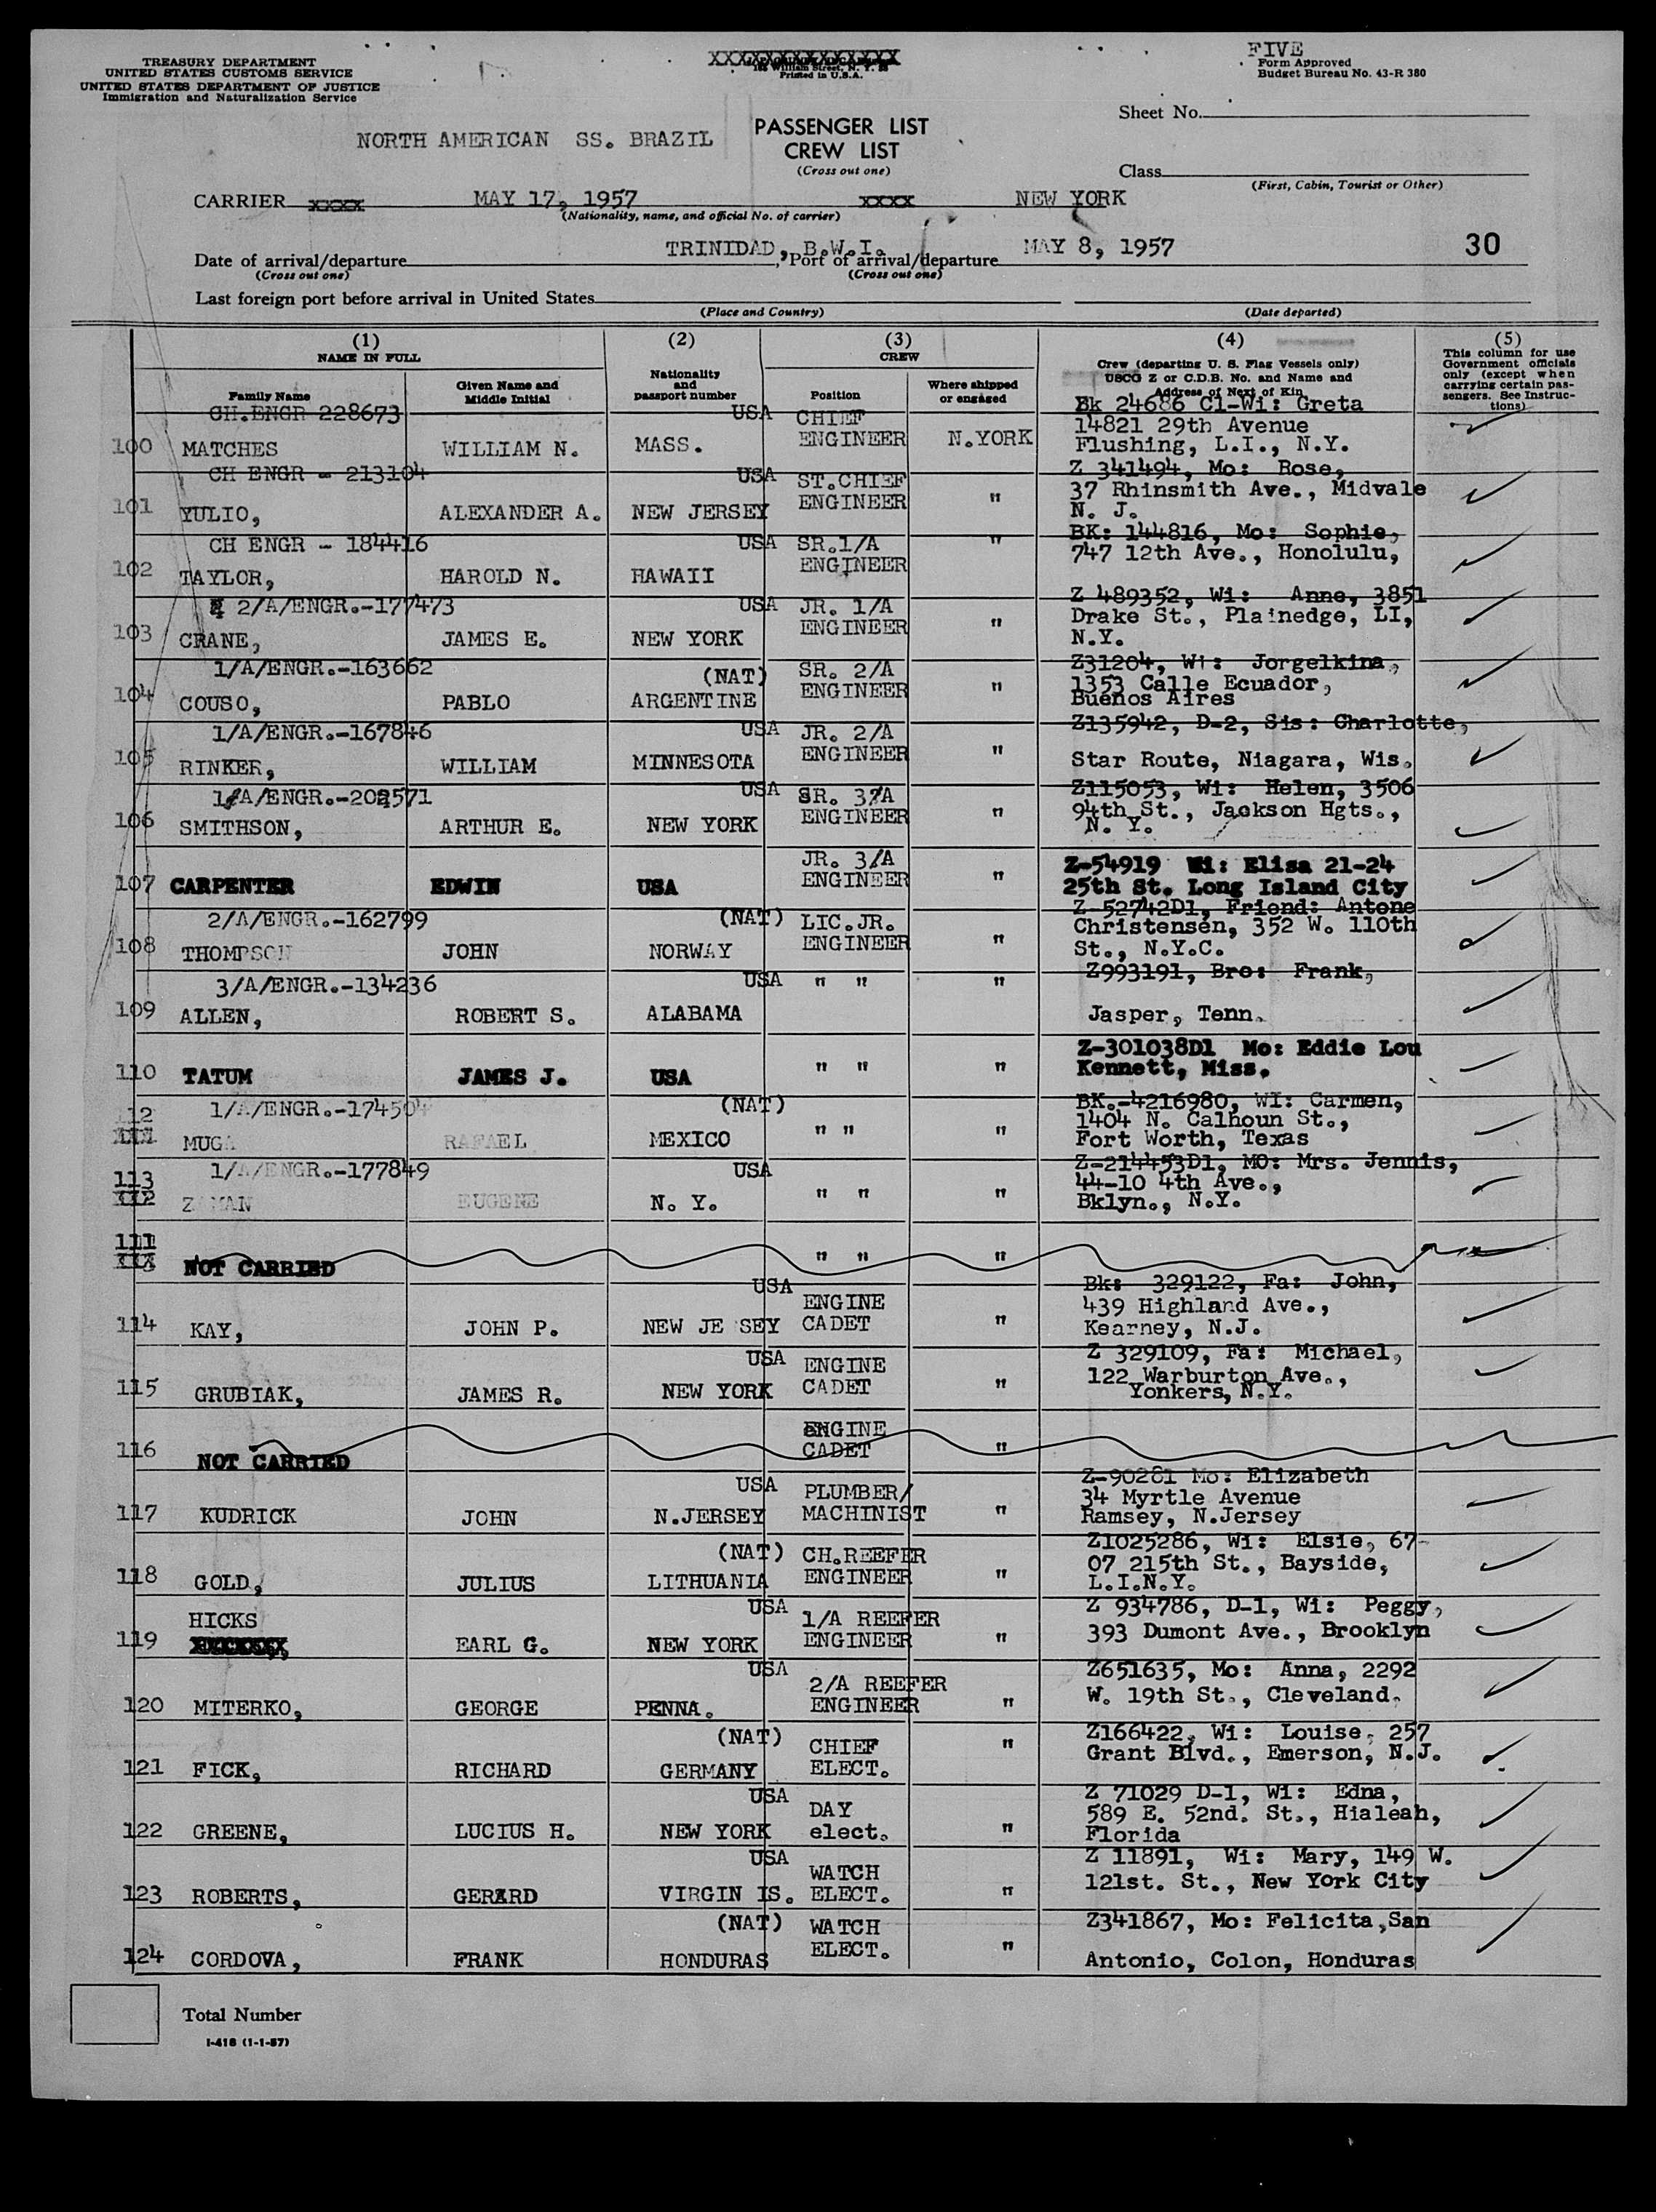 FIVE
TREASURY DEPARTMENT
UNITED STATES CUSTOMS SERVICE
UNITED STATES DEPARTMENT OF JUSTICE
Immigration and Naturalization Service
William Street, N. Y.
Printed in U.S.A.
Form Approved
Budget Bureau No. 43-R 380
Sheet No.
NORTH AMERICAN SS. BRAZIL
PASSENGER LIST
CREW LIST
(Cross out one)
Class
(First, Cabin, Tourist or Other)
CARRIER xxxx MAY 17, 1957 xxxx NEW YORK
(Nationality, name, and official No. of carrier)
TRINIDAD, B.W.I. MAY 8, 1957 30
Date of arrival/departure , Port of arrival/departure
(Cross out one) (Cross out one)
Last foreign port before arrival in United States
(Place and Country) (Date departed)
(1) (2) (3) (4) (5)
NAME IN FULL
Family Name
Given Name and
Middle Initial
Nationality
and
passport number
CREW
Position
Where shipped
or engaged
Crew (departing U. S. Flag Vessels only)
USCG Z or C.D.B. No. and Name and
Address of Next of Kin
This column for use
Government officials
only (except when
carrying certain pas-
sengers. See Instruc-
tions)
CH.ENGR 228673 USA CHIEF Bk 24686 Cl-Wi: Greta
14821 29th Avenue
100 MATCHES WILLIAM N. MASS. ENGINEER N.YORK Flushing, L.I., N.Y.
CH ENGR - 213104 USA ST.CHIEF Z 341494, Mo: Rose,
ENGINEER " 37 Rhinsmith Ave., Midvale
101 YULIO, ALEXANDER A. NEW JERSEY N. J.
CH ENGR - 184416 USA SR.1/A " BK: 144816, Mo: Sophie,
ENGINEER 747 12th Ave., Honolulu,
102 TAYLOR, HAROLD N. HAWAII
2/A/ENGR.-177473 USA JR. 1/A Z 489352, Wi: Anne, 3851
ENGINEER " Drake St., Plainedge, LI,
103 CRANE, JAMES E. NEW YORK N.Y.
1/A/ENGR.-163662 (NAT) SR. 2/A Z31204, Wi: Jorgelkina,
ENGINEER " 1353 Calle Ecuador,
104 COUSO, PABLO ARGENTINE Buenos Aires
1/A/ENGR.-167846 USA JR. 2/A Z135942, D-2, Sis: Charlotte,
ENGINEER "
105 RINKER, WILLIAM MINNESOTA Star Route, Niagara, Wis.
USA SR. 3/A Z115053, Wi: Helen, 3506
ENGINEER " 94th St., Jackson Hgts.,
106 SMITHSON, ARTHUR E. NEW YORK N. Y.
JR. 3/A Z-54919 Wi: Elisa 21-24
107 CARPENTER EDWIN USA ENGINEER " 25th St. Long Island City
2/A/ENGR.-162799 (NAT) LIC.JR. Z-52742D1, Friend: Antone
ENGINEER " Christensen, 352 W. 110th
108 THOMPSON JOHN NORWAY St., N.Y.C.
3/A/ENGR.-134236 USA " " " Z993191, Bro: Frank,
109 ALLEN, ROBERT S. ALABAMA Jasper, Tenn.
Z-301038D1 Mo: Eddie Lou
110 TATUM JAMES J. USA " " " Kennett, Miss.
1/A/ENGR.-174504 (NAT) BK.-4216980, WI: Carmen,
112 " " " 1404 N. Calhoun St.,
111 MUGA RAFAEL MEXICO Fort Worth, Texas
1/A/ENGR.-177849 USA Z-214453D1, MO: Mrs. Jennis,
113 " " " 44-10 4th Ave.,
112 EUGENE N. Y. Bklyn., N.Y.
111 " " "
NOT CARRIED
USA ENGINE Bk: 329122, Fa: John,
439 Highland Ave.,
114 KAY, JOHN P. NEW JE SEY CADET " Kearney, N.J.
USA ENGINE Z 329109, Fa: Michael,
CADET " 122 Warburton Ave.,
115 GRUBIAK, JAMES R. NEW YORK Yonkers, N.Y.
ENGINE
116 NOT CARRIED CADET "
USA PLUMBER/ Z-90281 Mo: Elizabeth
34 Myrtle Avenue
117 KUDRICK JOHN N.JERSEY MACHINIST " Ramsey, N.Jersey
(NAT) CH.REEFER Z1025286, Wi: Elsie, 67-
ENGINEER " 07 215th St., Bayside,
118 GOLD, JULIUS LITHUANIA L.I.N.Y.
HICKS USA 1/A REEFER Z 934786, D-1, Wi: Peggy,
119 EARL G. NEW YORK ENGINEER " 393 Dumont Ave., Brooklyn
USA 2/A REEFER Z651635, Mo: Anna, 2292
120 MITERKO, GEORGE PENNA. ENGINEER " W. 19th St., Cleveland.
(NAT) CHIEF " Z166422, Wi: Louise, 257
Grant Blvd., Emerson, N.J.
121 FICK, RICHARD GERMANY ELECT.
USA DAY Z 71029 D-1, Wi: Edna,
589 E. 52nd. St., Hialeah,
122 GREENE, LUCIUS H. NEW YORK elect. " Florida
USA WATCH Z 11891, Wi: Mary, 149 W.
123 ROBERTS, GERARD VIRGIN IS. ELECT. " 121st. St., New York City
(NAT) WATCH Z341867, Mo: Felicita,San
ELECT. "
124 CORDOVA, FRANK HONDURAS Antonio, Colon, Honduras
Total Number
I-418 (1-1-57)